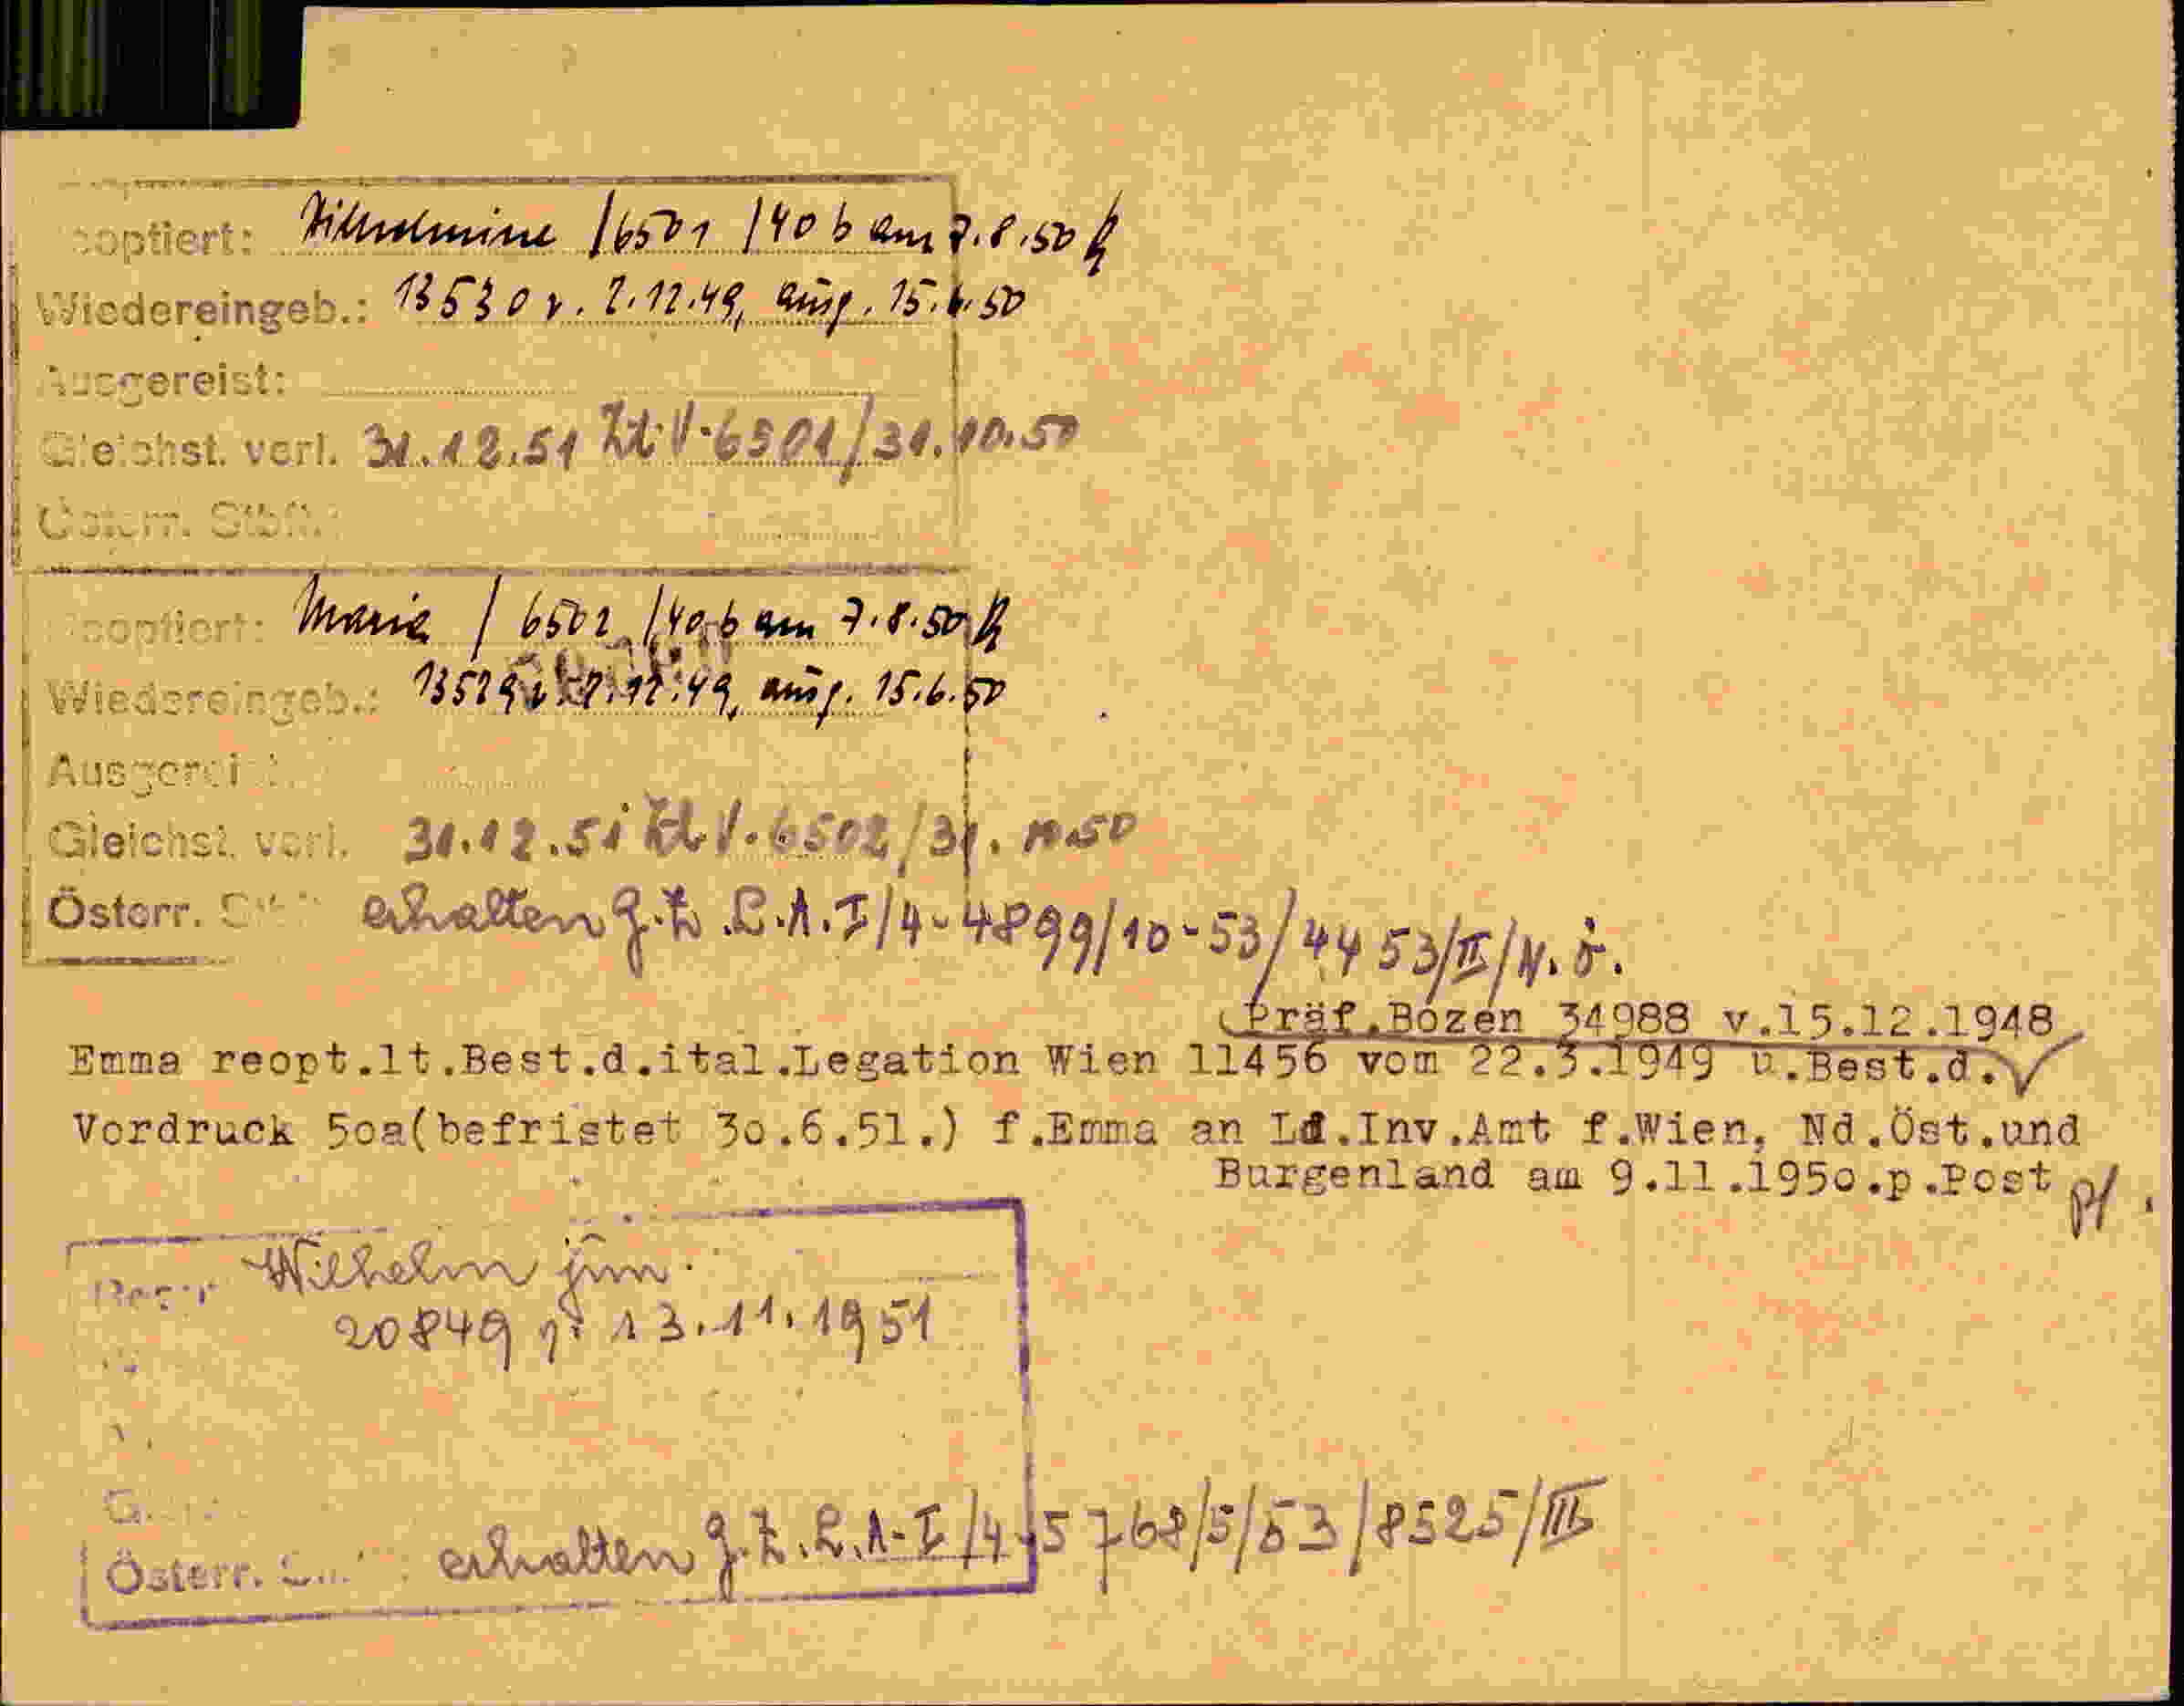 Reoptiert: Wilhelmine / 6501 / 40 b am 7.8.50
Wiedereingeb.: 13530 v. 2.12.49, ausg. 15.6.50
Ausgereist:
Gleichst. verl. 31.12.51 Zl. V-6501/31.10.50
Österr. Stbft.:
Reoptiert: Maria / 6502 / 40 b am 7.8.50
Wiedereingeb.: 13529 v. 2.12.49, ausg. 15.6.50
Ausgereist:
Gleichst. verl. 31.12.51 Zl. V-6502/31.10.50
Österr. erhalten g.Z. L.A.I/4-4899/10-53/4453/II/N.ö.
Präf.Bozen 34988 v.15.12.1948
Emma reopt.lt.Best.d.ital.Legation Wien 11456 vom 22.3.1949 u.Best.d.
Vordruck 50a(befristet 30.6.51.) f.Emma an Ld.Inv.Amt f.Wien, Nd.Öst.und
Burgenland am 9.11.1950.p.Post
Wilhelm jun.
20849 v. 13.11.1951
Österr. erhalten g.Z.L.A-I/4-5768/5/53/8525/III